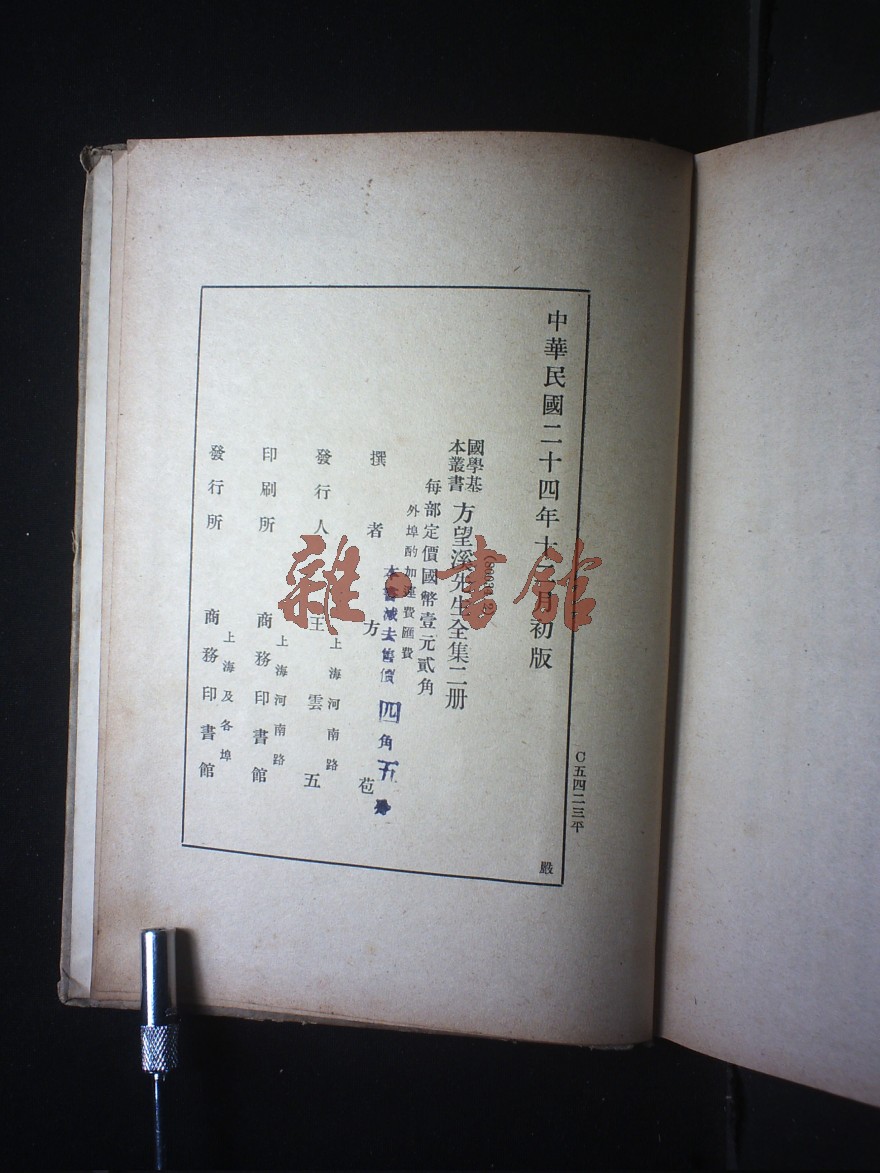 中華民國二十四年十二月初版
國學基本叢書
方望溪先生全集二册
每部定價國幣壹元貳角
外埠酌加運費匯費
本書減去售價四角五分
撰者 方苞
發行人 王雲五
上海河南路
印刷所 商務印書館
上海河南路
發行所 商務印書館
上海及各埠
C五四二三平
嚴
雜·書館